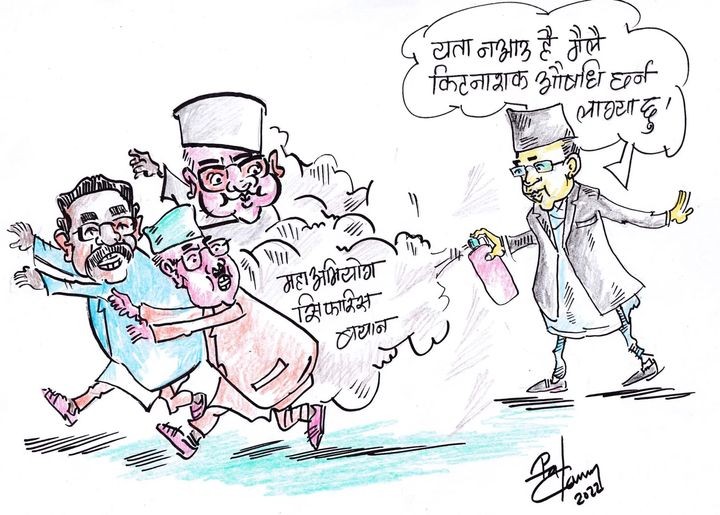 यता नआउ है मैले
किटनाशक औषधि छर्न
लाग्या छु !
महाअभियोग
सिफारिस
बयान
2022